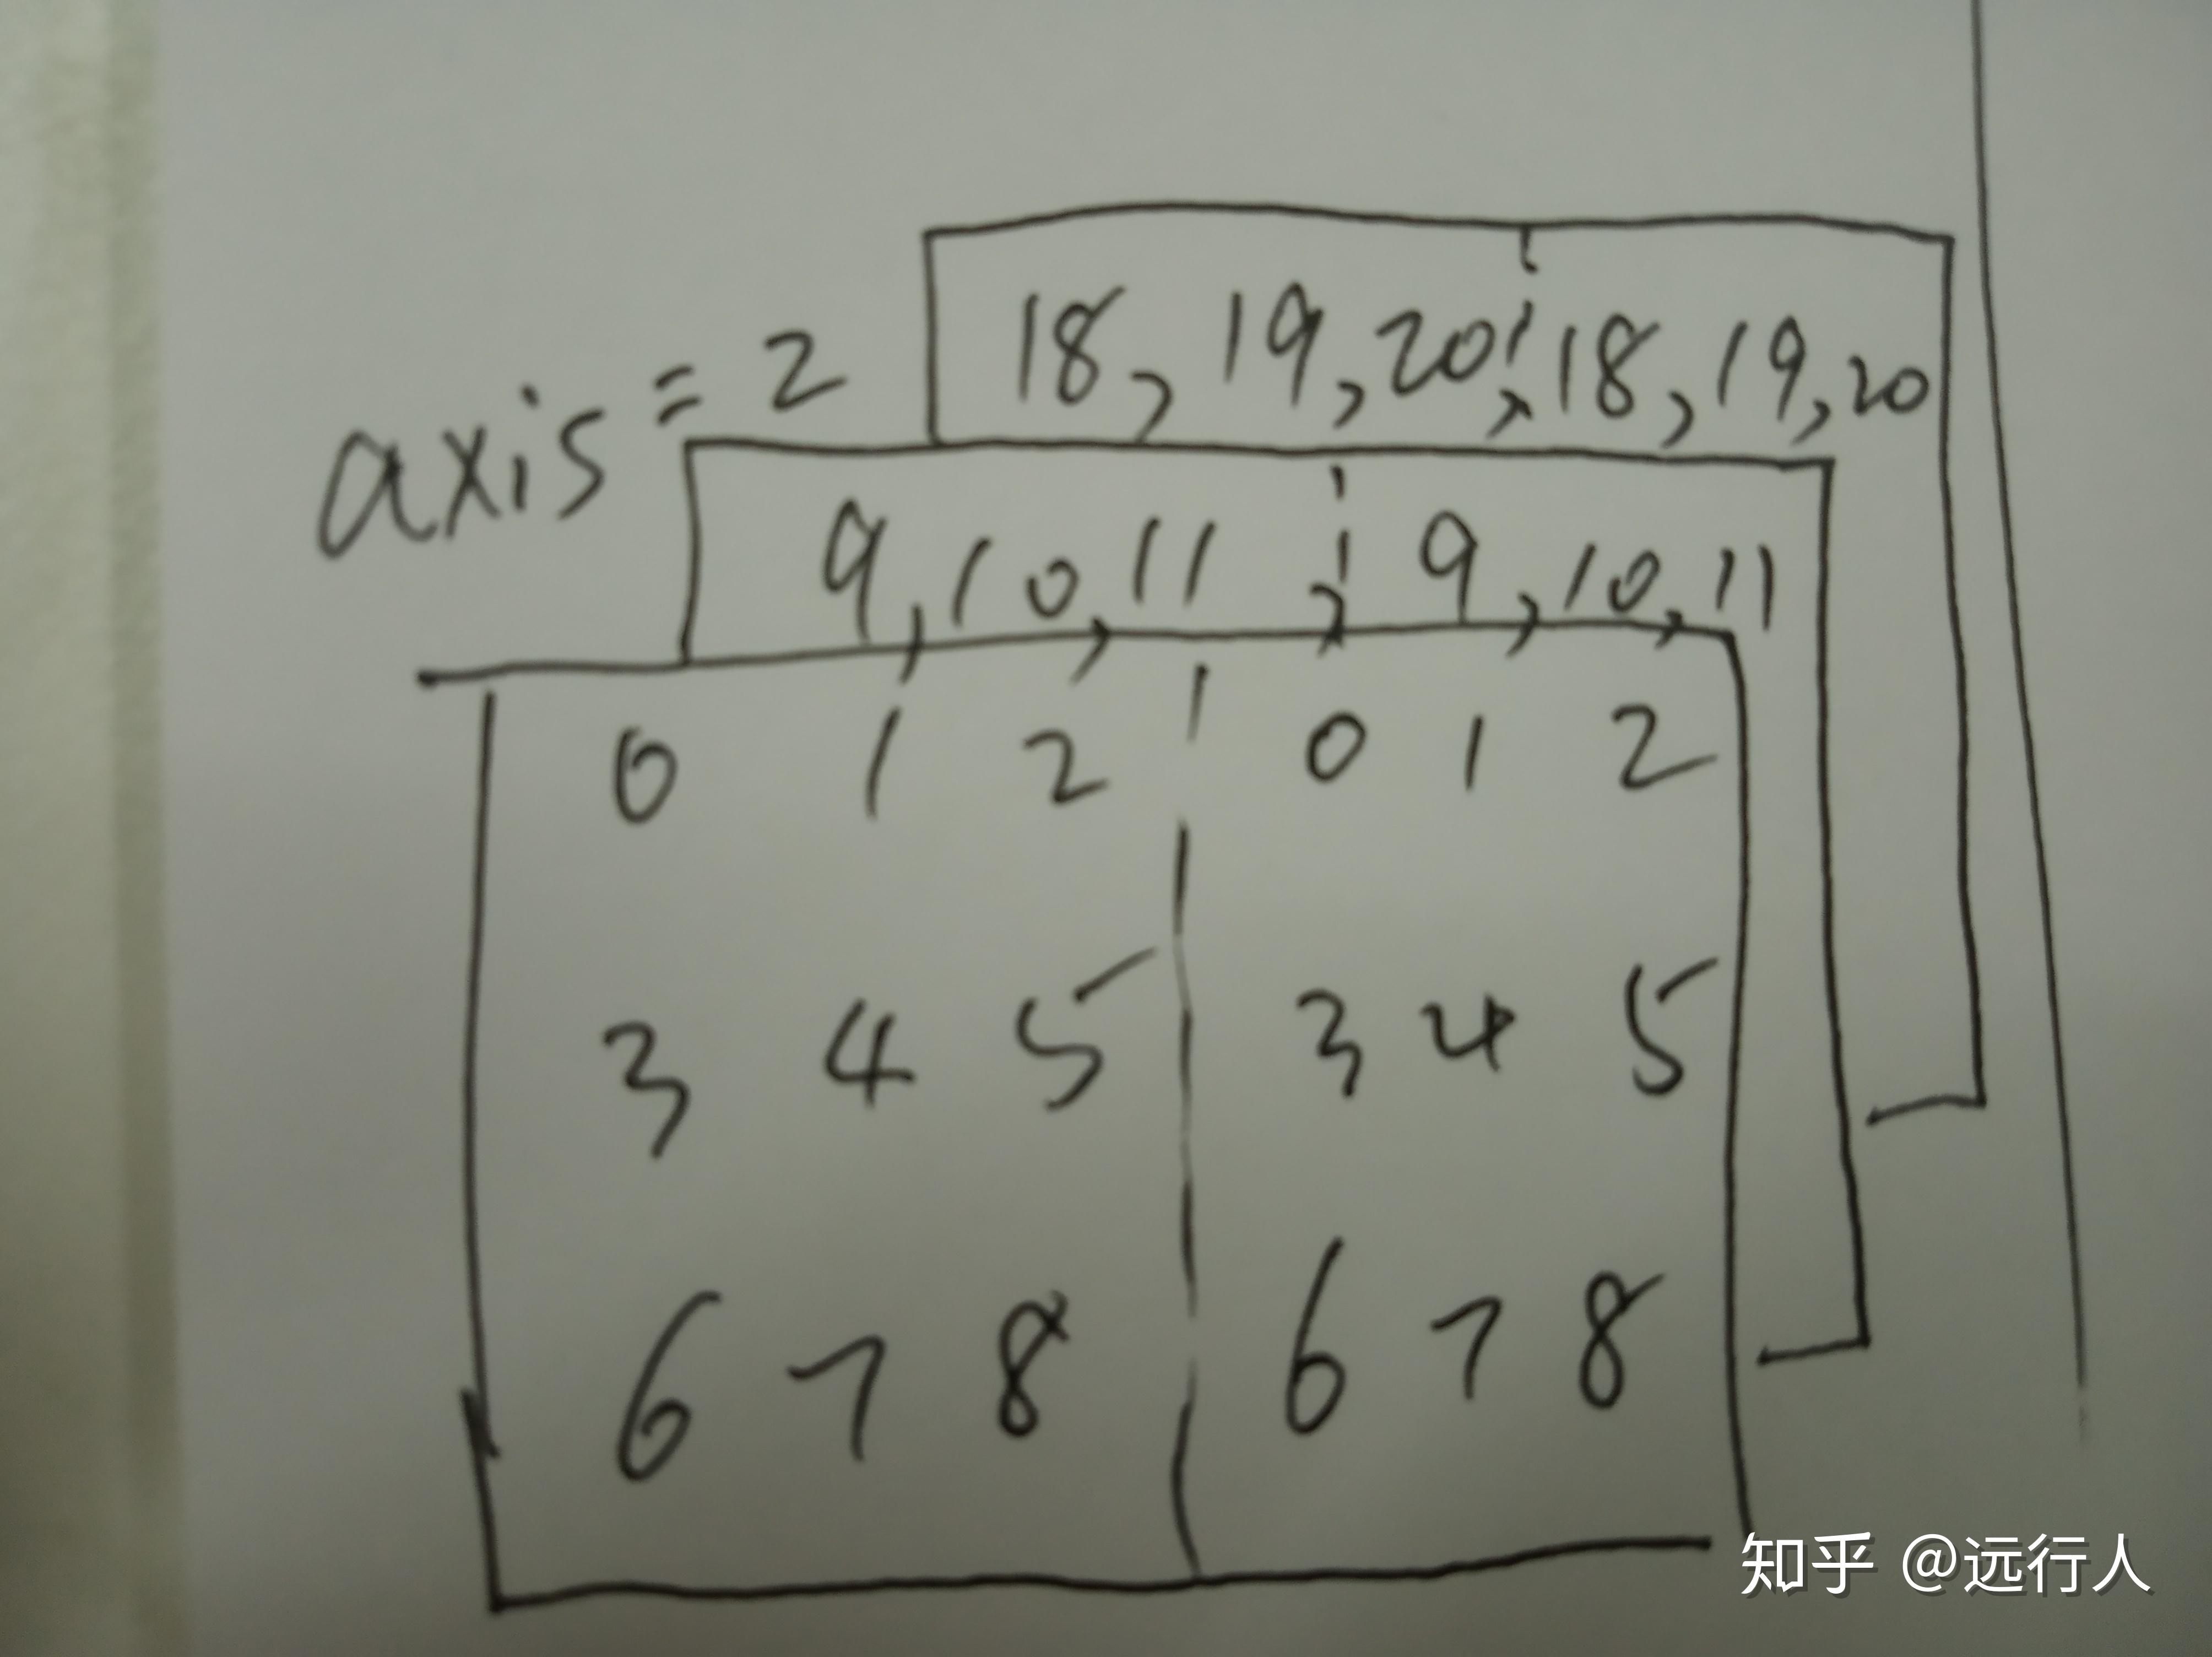 axis = 2
18, 19, 20, 18, 19, 20
9, 10, 11, 9, 10, 11
0 1 2 0 1 2
3 4 5 3 4 5
6 7 8 6 7 8
知乎 @远行人